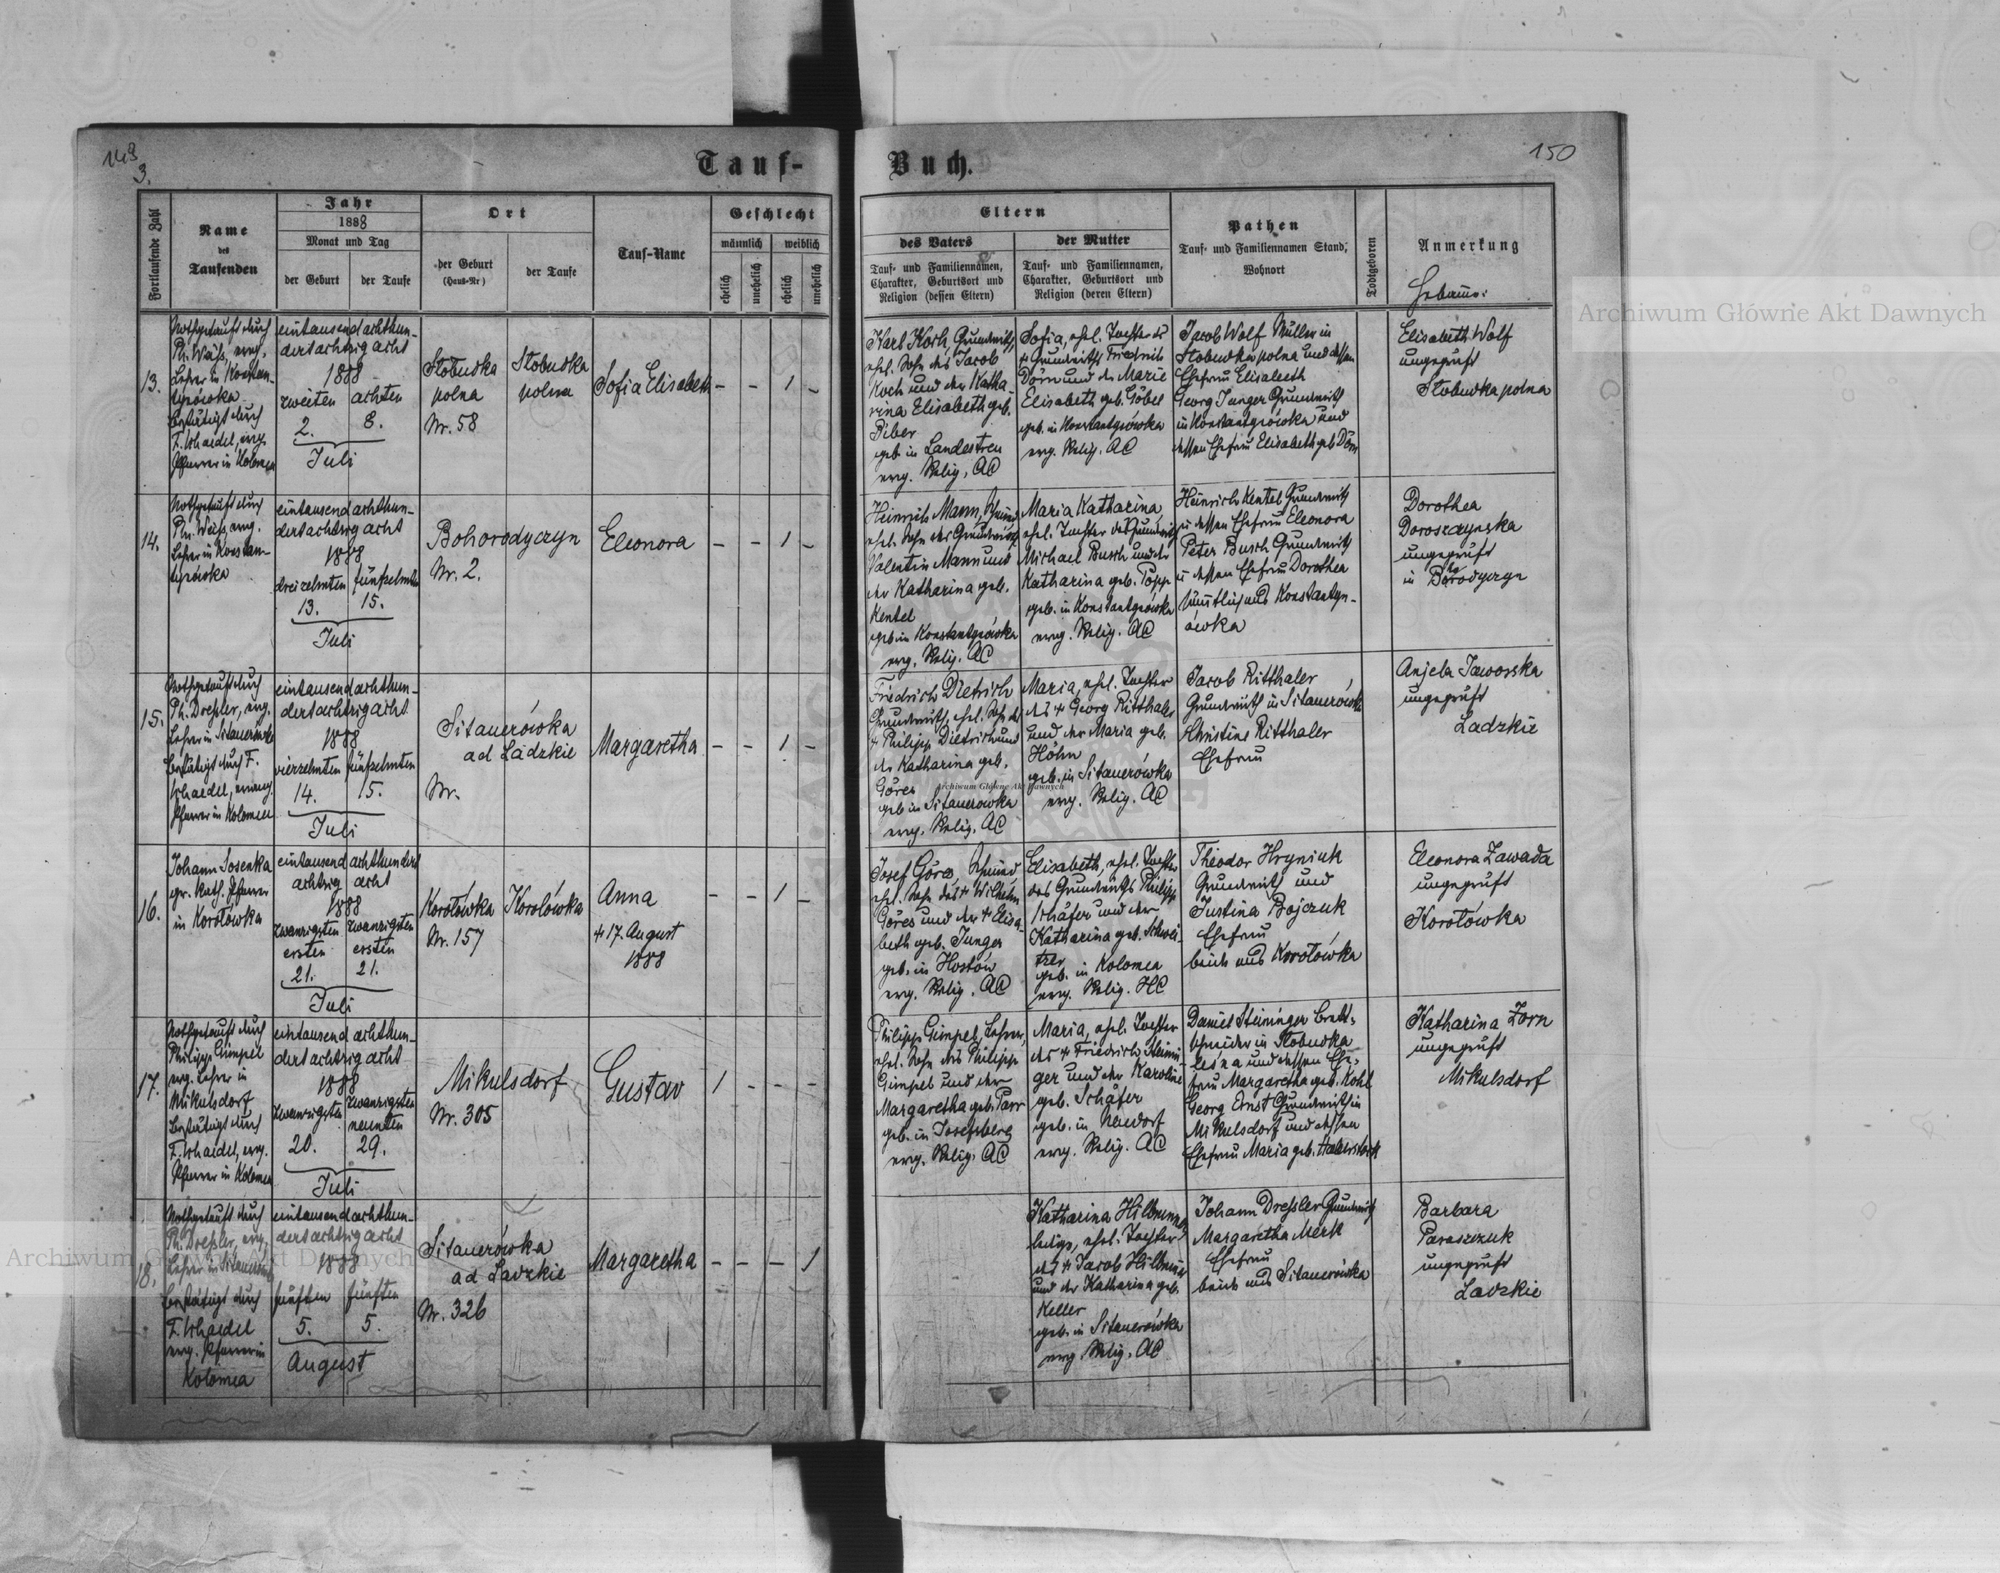 149
3.
Tauf-
Buch.
150
Fortlaufende Zahl
Name
des
Taufenden
Jahr
1888
Monat und Tag
der Geburt
der Taufe
Ort
der Geburt
(Haus-Nr)
der Taufe
Tauf-Name
Geschlecht
männlich
weiblich
ehelich
unehelich
ehelich
unehelich
Eltern
des Vaters
Tauf- und Familiennamen,
Charakter, Geburtsort und
Religion (dessen Eltern)
der Mutter
Tauf- und Familiennamen,
Charakter, Geburtsort und
Religion (deren Eltern)
Pathen
Tauf- und Familiennamen Stand,
Wohnort
Todtgeboren
Anmerkung
Hebamme:
13.
Nothgetauft durch
Ph. Weiß, evng.
Lehrer in Konstan-
tynówka
bestätigt durch
F. Schaedel, evng.
Pfarrer in Kolomea
eintausend achthun-
dertachtzig acht
1888
zweiten achten
2. 8.
Juli
Słobudka
polna
Nr. 58
Słobudka
polna
Sofia Elisabeth
- - 1 -
Karl Koch, Grundwirth
ehel. Sohn des Jacob
Koch und der Katha-
rina Elisabeth geb.
Biber
geb. in Landestreu
evng. Relig. AC
Sofia, ehel. Tochter des
+ Grundwirths Friedrich
Dörn und der Marie
Elisabeth geb. Göbel
geb. in Konstantynówka
evg. Relig. AC
Jacob Wolf Müller in
Słobudka polna und dessen
Ehefrau Elisabeth
Georg Junger Grundwirth
in Konstantynówka und
dessen Ehefrau Elisabeth geb. Dörn
Elisabeth Wolf
ungeprüft
Słobudka polna
14.
Nothgetauft durch
Ph. Weiß, evng.
Lehrer in Konstan-
tynówka
eintausend achthun-
dertachtzig acht
1888
dreizehnten fünfzehnten
13. 15.
Juli
Bohorodyczyn
Nr. 2.
Eleonora
- - 1 -
Heinrich Mann, Schmied
ehel. Sohn des Grundwirth
Valentin Mann und
der Katharina geb.
Kentel
geb. in Konstantynówka
evg. Relig. AC
Maria Katharina
ehel. Tochter des Grundwirth
Michael Busch und der
Katharina geb. Popp
geb. in Konstantynówka
evng. Relig. AC
Heinrich Kentel Grundwirth
u dessen Ehefrau Eleonora
Peter Busch Grundwirth
u dessen Ehefrau Dorothea
sämtlich aus Konstantyn-
ówka
Dorothea
Doroszczynska
ungeprüft
in Bohorodyczyn
15.
Nothgetauft durch
Ph. Dreßler, evg.
Lehrer in Sitauerówka
bestätigt durch F.
Schaedel, evang.
Pfarrer in Kolomea
eintausend achthun-
dertachtzig acht
1888
vierzehnten fünfzehnten
14. 15.
Juli
Sitauerówka
ad Ladzkie
Nr.
Margaretha
- - 1 -
Friedrich Dietrich
Grundwirth, ehel. Sohn des
+ Philipp Dietrich und
der Katharina geb.
Göres
geb. in Sitauerowka
evng. Relig. AC
Maria, ehel. Tochter
des + Georg Ritthaler
und der Maria geb.
Höhn
geb. in Sitauerówka
evng. Relig. AC
Jacob Ritthaler
Grundwirth in Sitauerówka
Christine Ritthaler
Ehefrau
Anjela Jaworska
ungeprüft
Ladzkie
16.
Johann Sosenka
gr. Kath. Pfarrer
in Korołówka
eintausend achthundert
achtzig acht
1888
zwanzigsten zwanzigsten
ersten ersten
21. 21.
Juli
Korołówka
Nr. 157
Korołówka
Anna
+ 17. August
1888
- - 1 -
Josef Göres, Schmied
ehel. Sohn des + Wilhelm
Göres und der + Elisa-
beth geb. Junger
geb. in Hostów
evng. Relig. AC
Elisabeth, ehel. Tochter
des Grundwirths Philipp
Schäfer und der
Katharina geb. Schwei-
tzer
geb. in Kolomea
evng. Relig. HC
Theodor Hryniuk
Grundwirth und
Justina Bojczuk
Ehefrau
beide aus Korołówka
Eleonora Zawada
ungeprüft
Korołówka
17.
Nothgetauft durch
Philipp Gimpel
evg. Lehrer in
Mikulsdorf
bestätigt durch
F. Schaedel, evg.
Pfarrer in Kolomea
eintausend achthun-
dertachtzig acht
1888
zwanzigsten zwanzigsten
neunten
20. 29.
Juli
Mikulsdorf
Nr. 305
Gustav
1 - - -
Philipp Gimpel, Lehrer,
ehel. Sohn des Philipp
Gimpel und der
Margaretha geb. Parr
geb. in Josefsberg
evng. Relig. AC
Maria, ehel. Tochter
des + Friedrich Steinin-
ger und der Karoline
geb. Schäfer
geb. in Neudorf
evng. Relig. AC
Daniel Steininger Brett-
schneider in Słobudka
leśna und dessen Ehe-
frau Margaretha geb. Kohl
Georg Ernst Grundwirth in
Mikulsdorf und dessen
Ehefrau Maria geb. Haberstock
Katharina Zorn
ungeprüft
Mikulsdorf
18.
Nothgetauft durch
Ph. Dreßler, evg.
Lehrer in Sitauerówka
bestätigt durch
F. Schaedel
evng. Pfarrer in
Kolomea
eintausend achthun-
dertachtzig acht
1888
fünften fünften
5. 5.
August
Sitauerówka
ad Ladzkie
Nr. 326
Margaretha
- - - 1
Katharina Hilbrunner
ledige, ehel. Tochter
des + Jacob Hilbrunner
und der Katharina geb.
Keller
geb. in Sitauerówka
evng. Relig. AC
Johann Dreßler Grundwirth
Margaretha Merk
Ehefrau
beide aus Sitauerówka
Barbara
Paraszczuk
ungeprüft
Ladzkie
Archiwum Główne Akt Dawnych
Archiwum Główne Akt Dawnych
Archiwum Główne Akt Dawnych